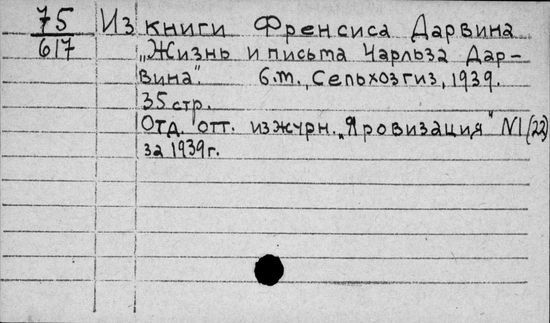 75
617
Из книги Френсиса Дарвина
„Жизнь и письма Чарльза Дар-
вина". б.т., Сельхозгиз, 1939.
35 стр.
Отд. отт. из журн. „Яровизация" №1 (22)
за 1939г.